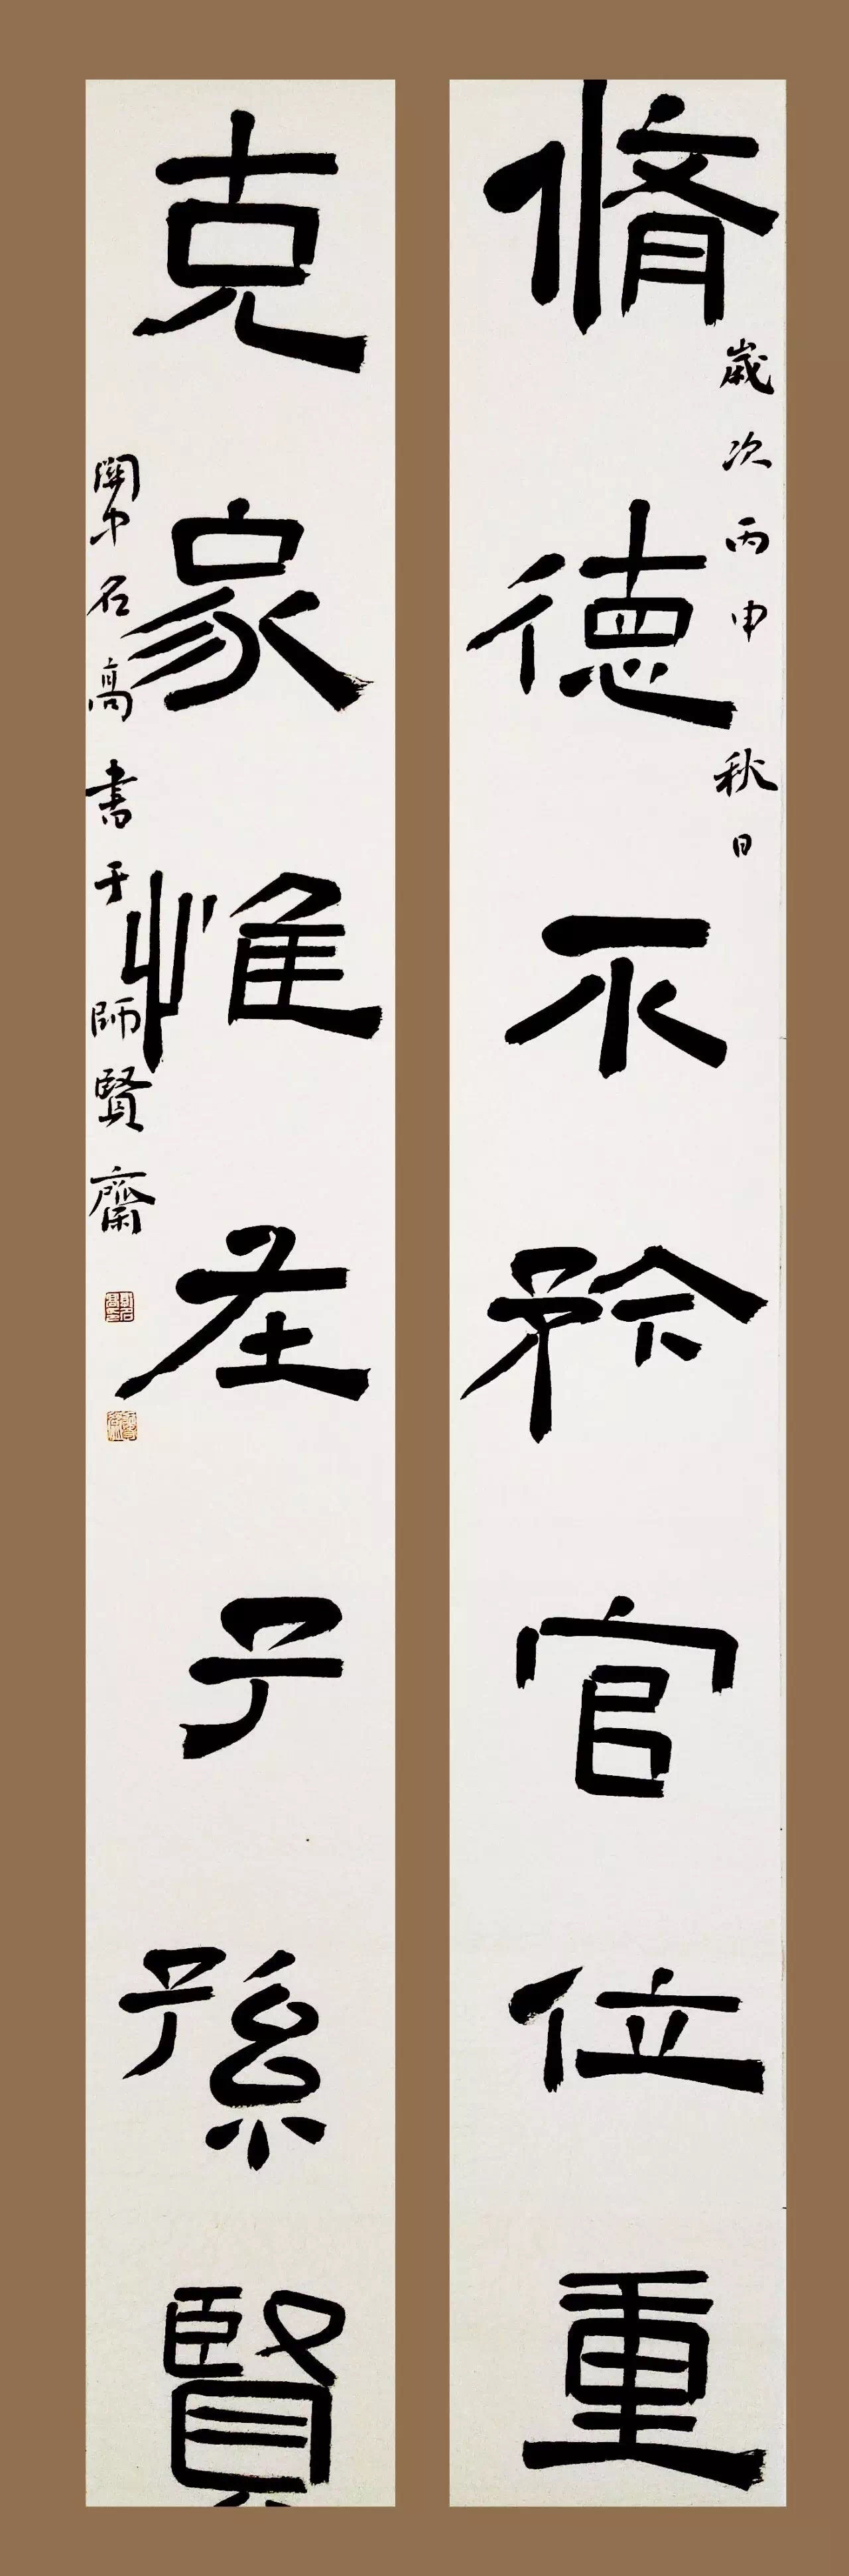 脩德不矜官位重
歲次丙申秋日
克家惟在子孫賢
關中名高書于師賢齋